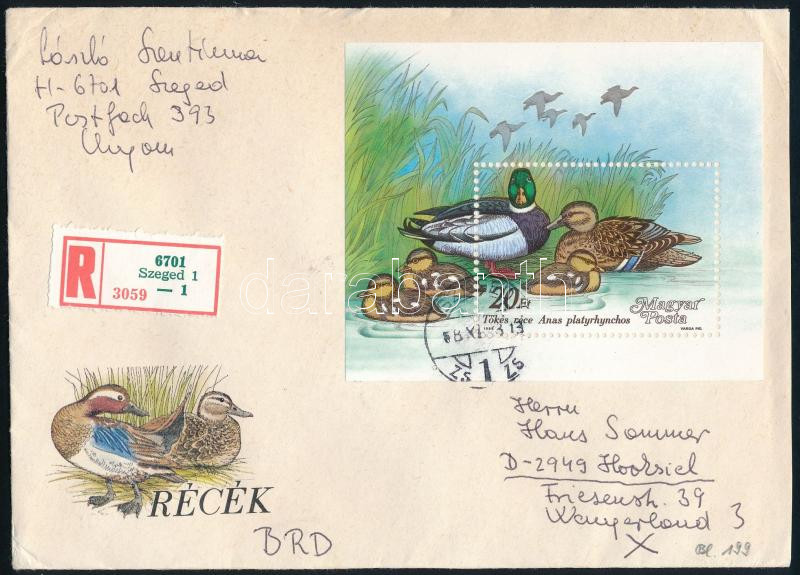 László Szentilmai
H-6701 Szeged
Postfach 393
Ungarn
R
6701
Szeged 1
3059
— 1
20 Ft
Tőkés réce Anas platyrhynchos
1988
Magyar
Posta
VARGA PÁL
1
darabanth
RÉCÉK
BRD
Herrn
Hans Sommer
D-2949 Hooksiel
Friesenstr. 39
Wangerland 3
X
Bl. 199